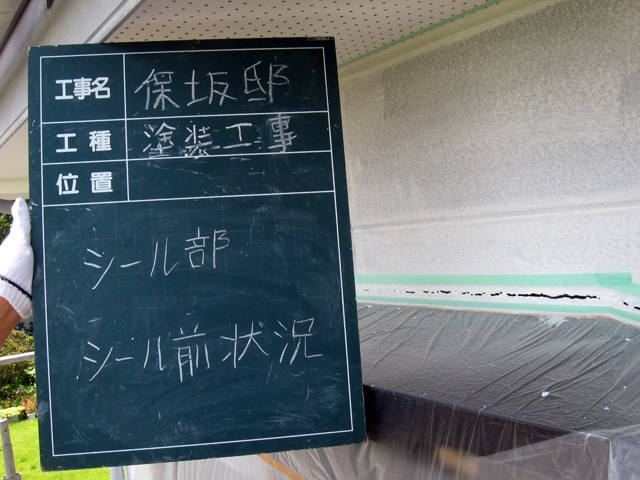 工事名 保坂邸
工種 塗装工事
位置
シール部
シール前状況